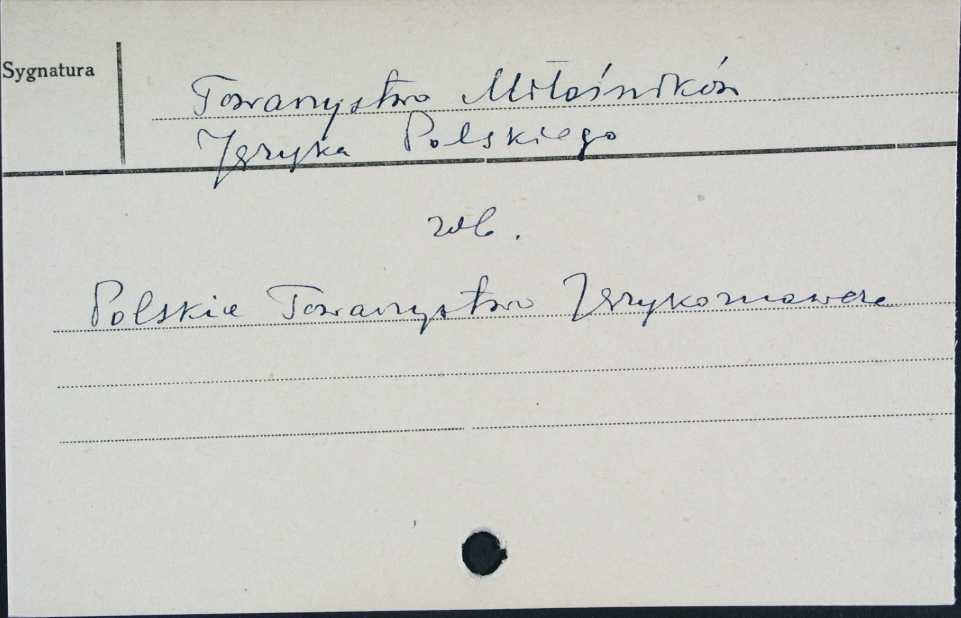 Sygnatura
Towarzystwo Miłośników
Języka Polskiego
zob.
Polskie Towarzystwo Językoznawcze